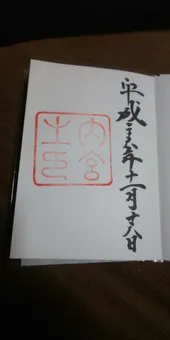 平成年十一月十八日
内宮
之印